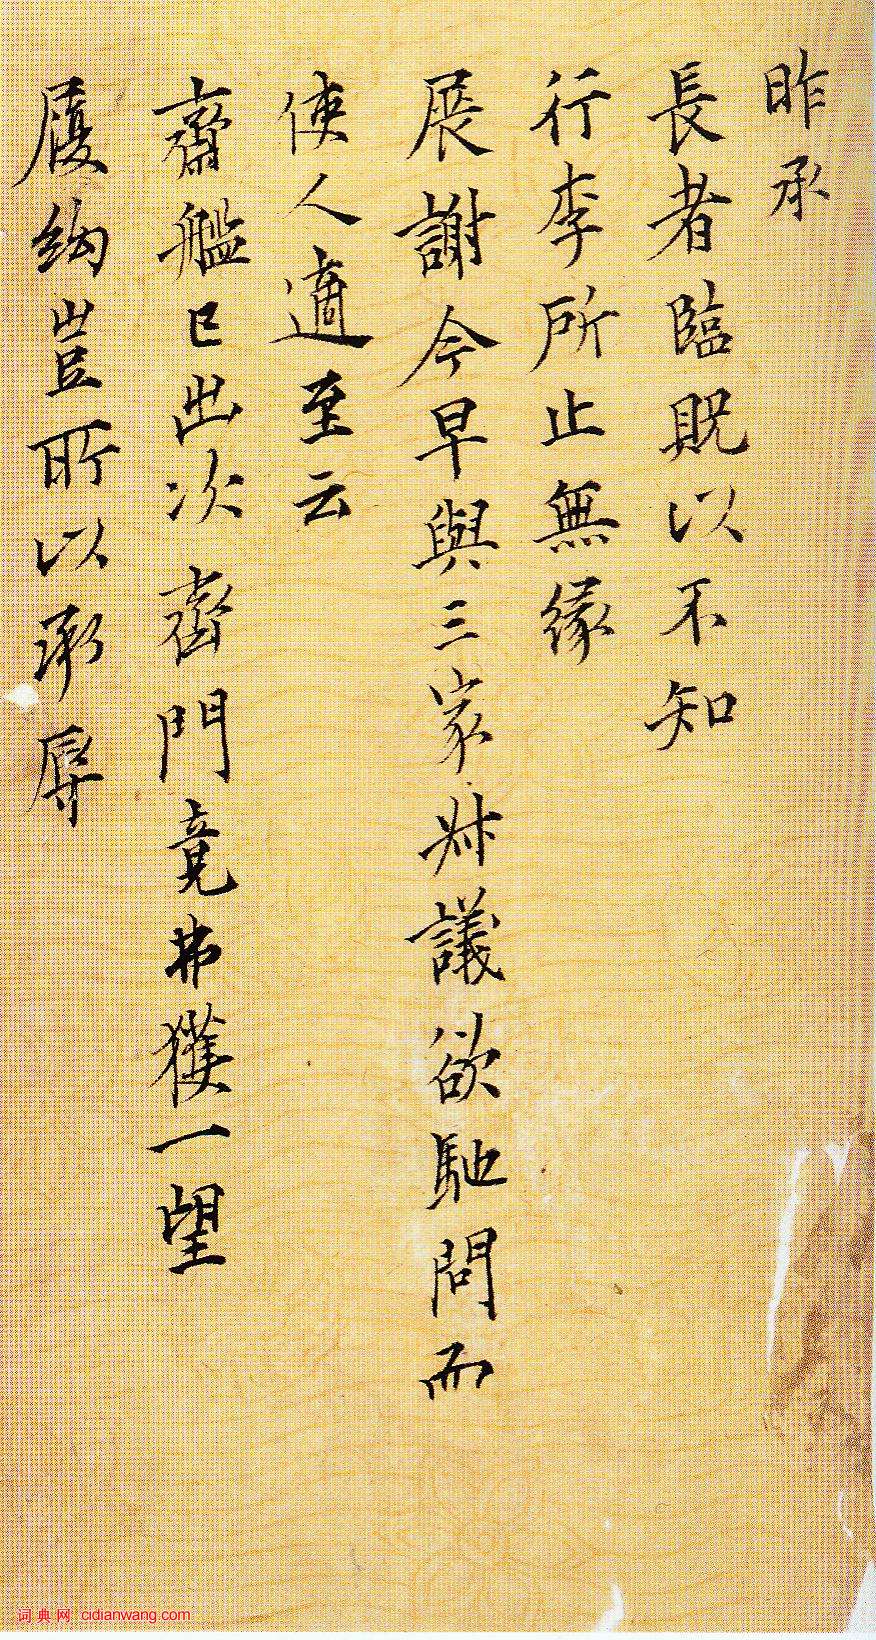 昨承
長者臨貺以不知
行李所止無緣
展謝今早與三家叔議欲馳問而
使人適至云
齋艦已出次齊門竟弗獲一望
履絇豈所以承辱
词典网 cidianwang.com